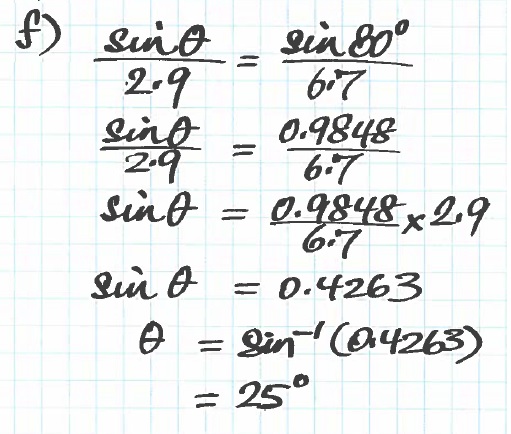 f) sinθ/2.9 = sin80°/6.7
sinθ/2.9 = 0.9848/6.7
sinθ = 0.9848/6.7 × 2.9
sin θ = 0.4263
θ = sin⁻¹(0.4263)
= 25°